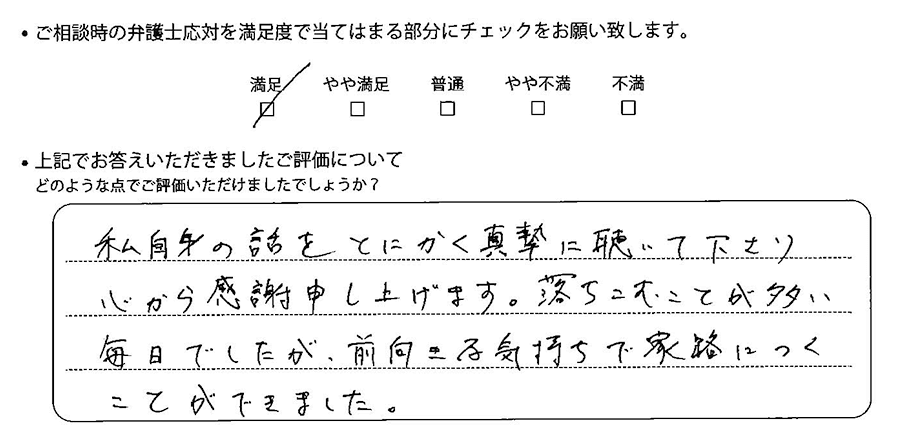 • ご相談時の弁護士応対を満足度で当てはまる部分にチェックをお願い致します。
満足 やや満足 普通 やや不満 不満
☑ □ □ □ □
• 上記でお答えいただきましたご評価について
どのような点でご評価いただけましたでしょうか？
私自身の話をとにかく真摯に聴いて下さり
心から感謝申し上げます。落ちこむことが多い
毎日でしたが、前向きな気持ちで家路につく
ことができました。